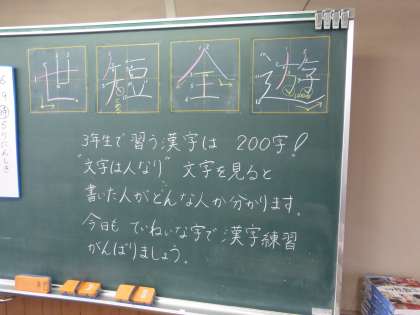 世 短 全 遊
3年生で習う漢字は 200字!
"文字は人なり" 文字を見ると
書いた人がどんな人か分かります。
今日も ていねいな字で 漢字練習
がんばりましょう。